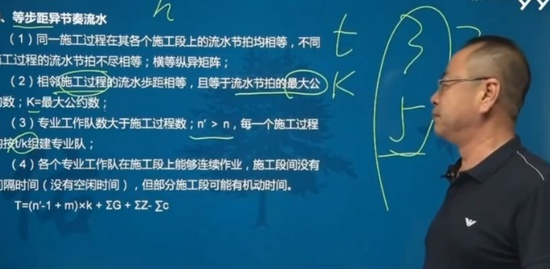 、等步距异节奏流水
（1）同一施工过程在其各个施工段上的流水节拍均相等，不同
施工过程的流水节拍不尽相等；横等纵异矩阵；
（2）相邻施工过程的流水步距相等，且等于流水节拍的最大公
约数；K=最大公约数；
（3）专业工作队数大于施工过程数；n'＞n，每一个施工过程
均按t/k组建专业队；
（4）各个专业工作队在施工段上能够连续作业，施工段间没有
间隔时间（没有空闲时间），但部分施工段可能有机动时间。
T=(n'-1 + m)×k + ΣG + ΣZ- ∑c
n
t
K
3
5